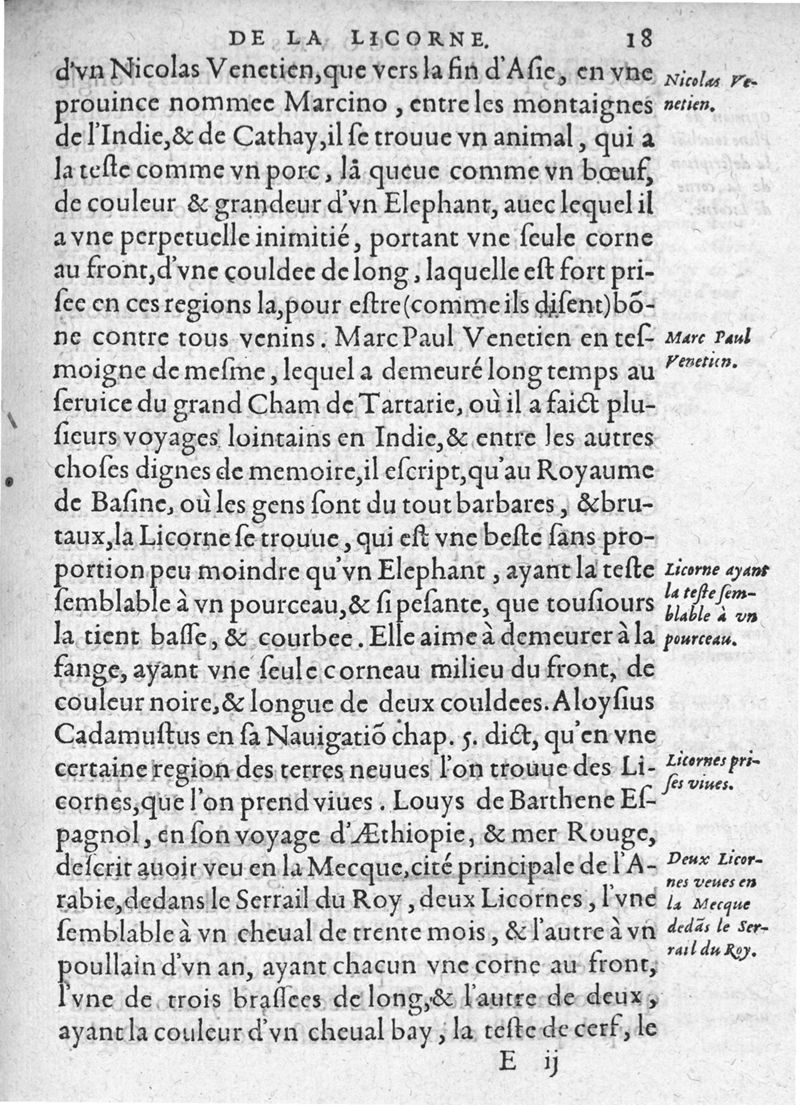 DE LA LICORNE. 18
d'vn Nicolas Venetien,que vers la fin d'Aſie, en vne
prouince nommee Marcino, entre les montaignes
de l'Indie,& de Cathay,il ſe trouue vn animal, qui a
la teſte comme vn porc, lâ queue comme vn bœuf,
de couleur & grandeur d'vn Elephant, auec lequel il
a vne perpetuelle inimitié, portant vne ſeule corne
au front,d'vne couldee de long, laquelle eſt fort pri-
ſee en ces regions la,pour eſtre(comme ils diſent)bõ-
ne contre tous venins. Marc Paul Venetien en teſ-
moigne de meſme, lequel a demeuré long temps au
ſeruice du grand Cham de Tartarie, où il a faict plu-
ſieurs voyages lointains en Indie,& entre les autres
choſes dignes de memoire,il eſcript,qu'au Royaume
de Baſine, où les gens ſont du tout barbares, &bru-
taux,la Licorne ſe trouue, qui eſt vne beſte ſans pro-
portion peu moindre qu'vn Elephant, ayant la teſte
ſemblable à vn pourceau,& ſi peſante, que touſiours
la tient baſſe, & courbee. Elle aime à demeurer à la
fange, ayant vne ſeule corneau milieu du front, de
couleur noire,& longue de deux couldees. Aloyſius
Cadamuſtus en ſa Nauigatiõ chap. 5. dict, qu'en vne
certaine region des terres neuues l'on trouue des Li-
cornes,que l'on prend viues. Louys de Barthene Eſ-
pagnol, en ſon voyage d'Æthiopie, & mer Rouge,
deſcrit auoir veu en la Mecque,cité principale de l'A-
rabie,dedans le Serrail du Roy, deux Licornes, l'vne
ſemblable à vn cheual de trente mois, & l'autre à vn
poullain d'vn an, ayant chacun vne corne au front,
l'vne de trois braſſees de long,& l'autre de deux,
ayant la couleur d'vn cheual bay, la teſte de cerf, le
E ij
Nicolas Ve-
netien.
Marc Paul
Venetien.
Licorne ayant
la teſte ſem-
blable à vn
pourceau.
Licornes pri-
ſes viues.
Deux Licor-
nes veues en
la Mecque
dedãs le Ser-
rail du Roy.